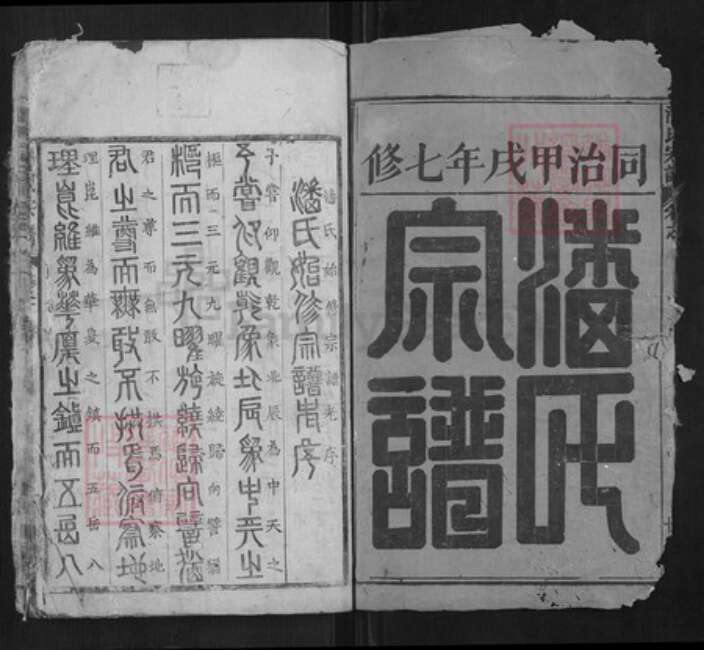 同治甲戌年七修
潘氏
宗譜
潘氏始修宗譜老序
潘氏始修宗譜老序
子嘗仰觀乾象北辰為中天之
子嘗仰觀乾象北辰為中天之
樞而三元九曜旋繞歸向譬猶
樞而三元九曜旋繞歸向譬猶
君之尊而無敢不拱焉俯察地
君之尊而無敢不拱焉俯察地
理崑維為華夏之鎮而五岳八
理崑維為華夏之鎮而五岳八